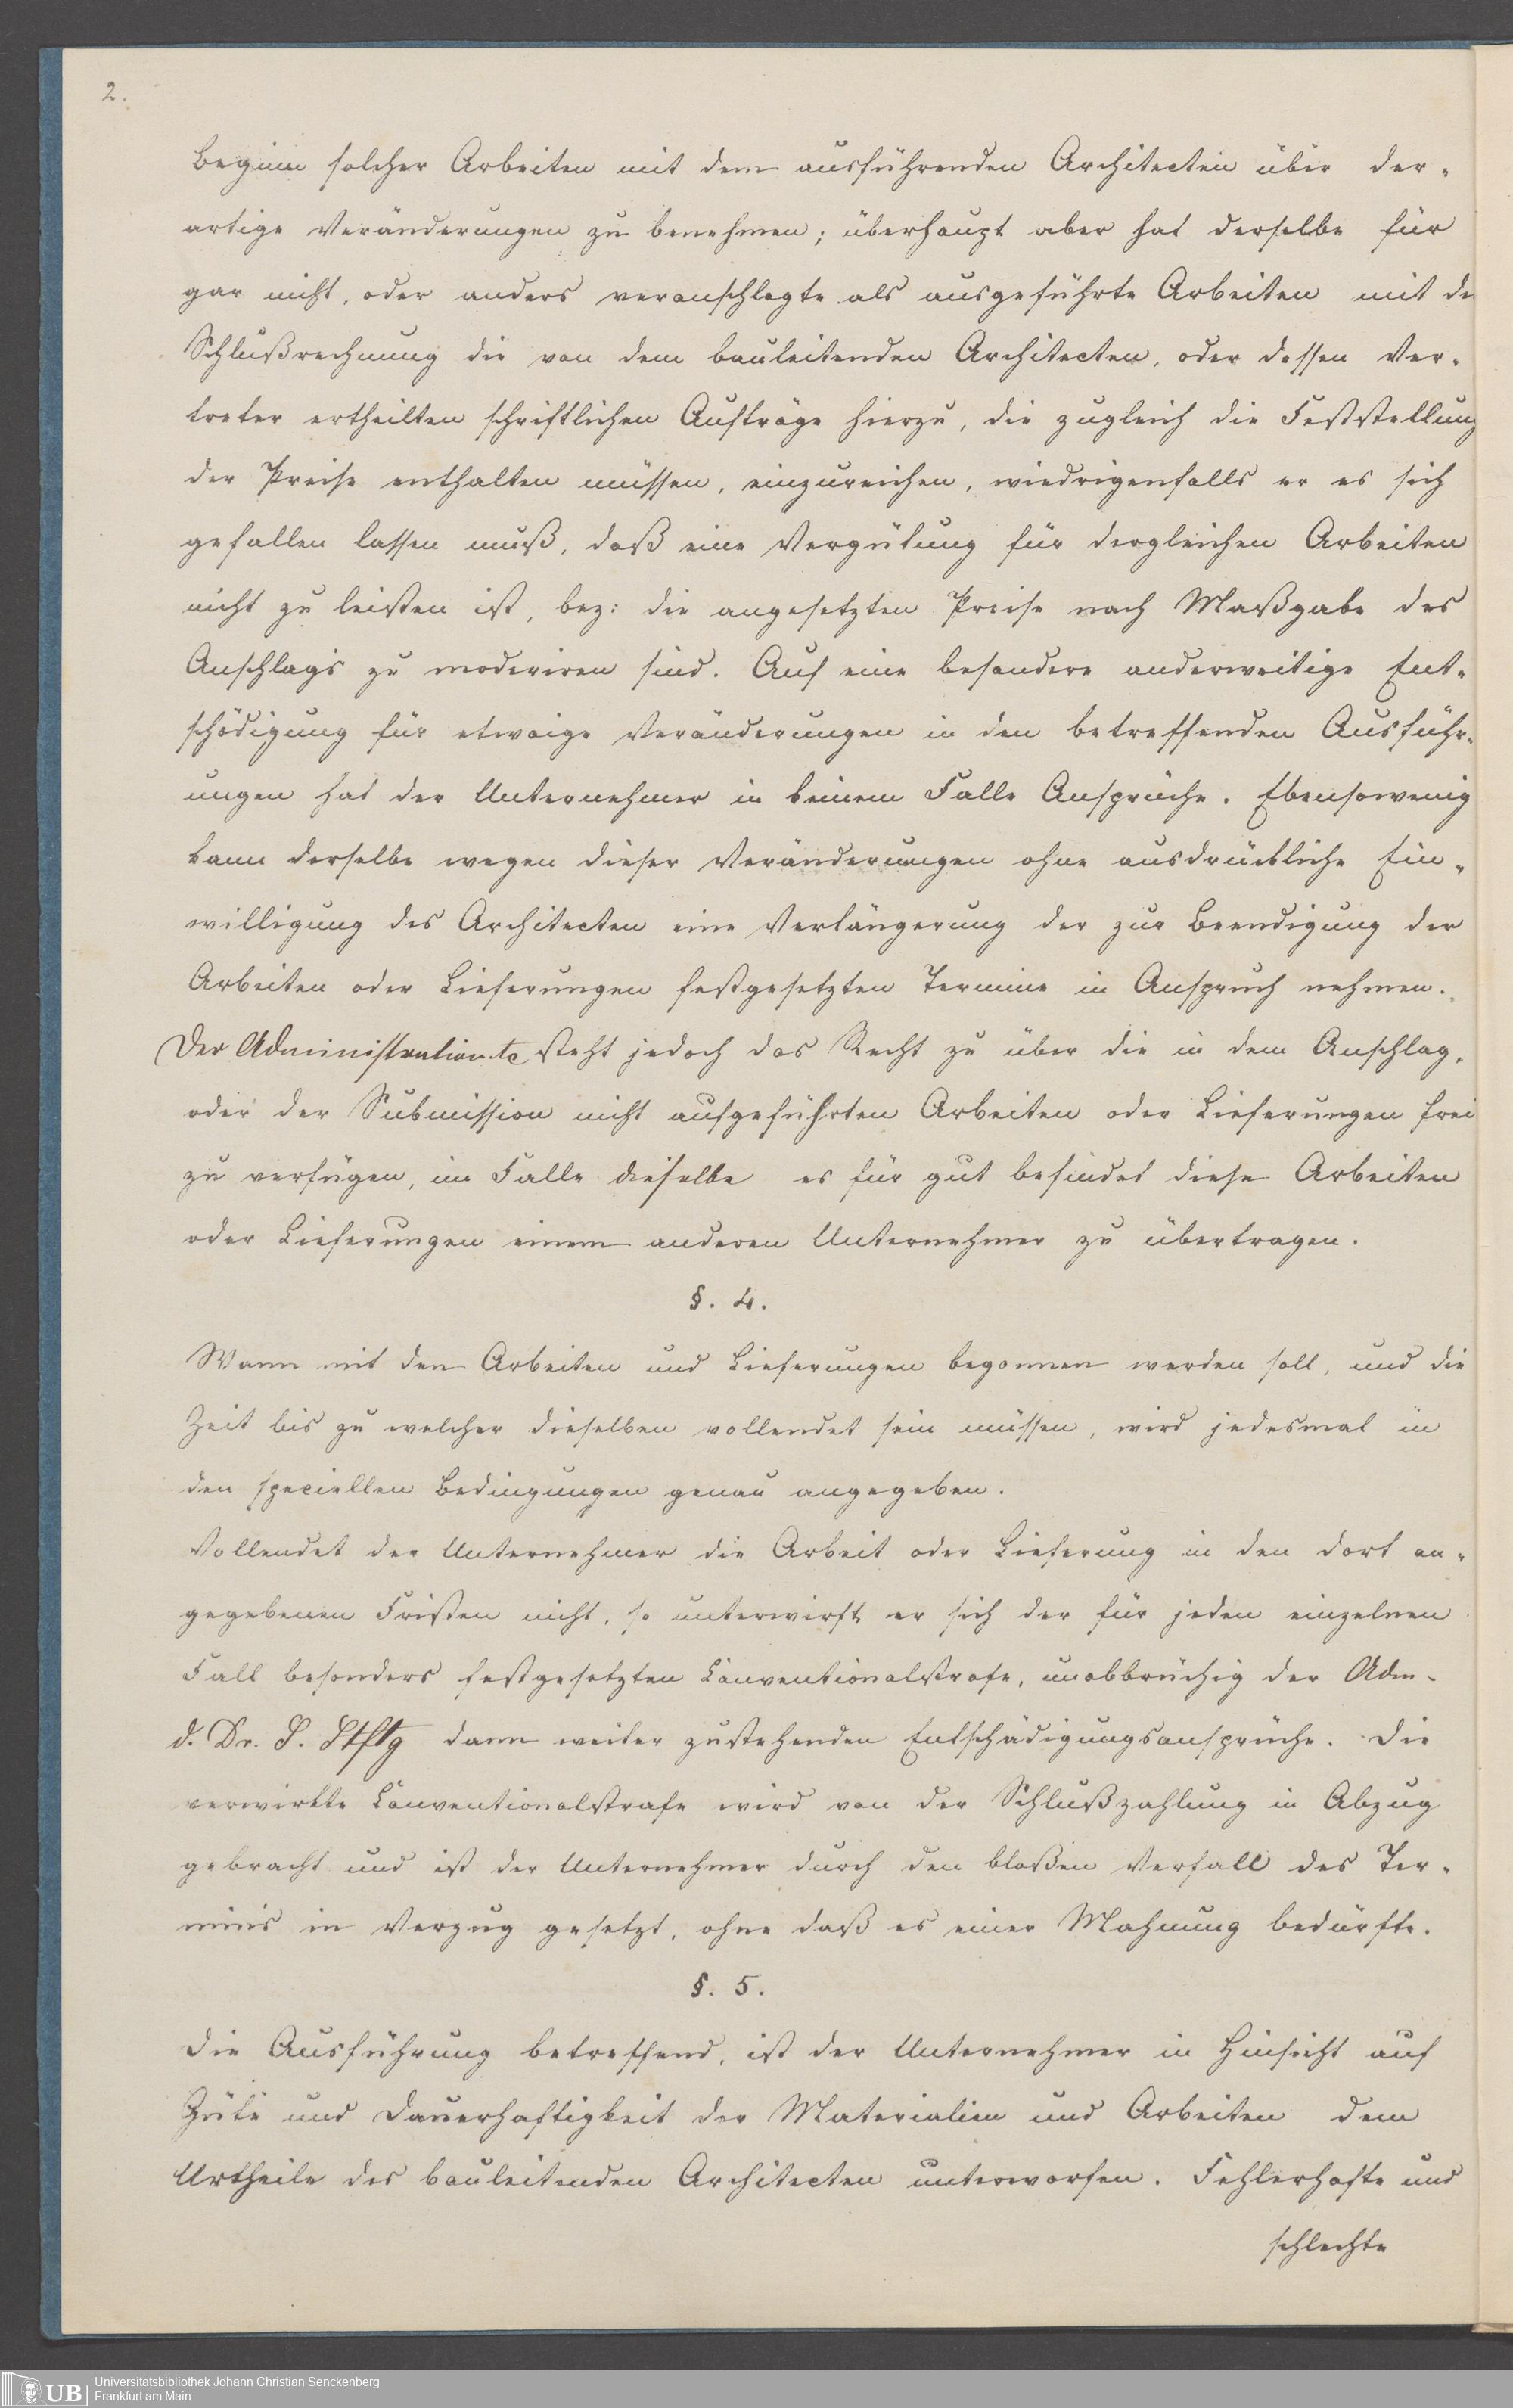 2.
Beginn solcher Arbeiten mit dem ausführenden Architecten über der-
artige Veränderungen zu benehmen; überhaupt aber hat derselbe für
gar nicht, oder anders veranschlagte als ausgeführte Arbeiten mit der
Schlußrechnung die von dem bauleitenden Architecten, oder dessen Ver-
treter ertheilten schriftlichen Aufträge hierzu, die zugleich die Feststellung
der Preise enthalten müssen, einzureichen, wiedrigenfalls er es sich
gefallen lassen muß, daß eine Vergütung für dergleichen Arbeiten
nicht zu leisten ist, bez: die angesetzten Preise nach Maßgabe des
Anschlags zu moderiren sind. Auf eine besondere anderweitige Ent-
schädigung für etwaige Veränderungen in den betreffenden Ausführ-
ungen hat der Unternehmer in keinem Falle Ansprüche. Ebensowenig
kann derselbe wegen dieser Veränderungen ohne ausdrückliche Ein-
willigung des Architecten eine Verlängerung der zur Beendigung der
Arbeiten oder Lieferungen festgesetzten Termine in Anspruch nehmen.
Der Administration tc steht jedoch das Recht zu über die in dem Anschlag,
oder der Submission nicht aufgeführten Arbeiten oder Lieferungen frei
zu verfügen, im Falle dieselbe es für gut befindet diese Arbeiten
oder Lieferungen einem anderen Unternehmer zu übertragen.
§. 4.
Wann mit den Arbeiten und Lieferungen begonnen werden soll, und die
Zeit bis zu welcher dieselben vollendet sein müssen, wird jedesmal in
den speciellen Bedingungen genau angegeben.
Vollendet der Unternehmer die Arbeit oder Lieferung in den dort an-
gegebenen Fristen nicht, so unterwirft er sich der für jeden einzelnen
Fall besonders festgesetzten Conventionalstrafe, unabbrüchig der Adm-
d. Dr. S. Stftg dann weiter zustehenden Entschädigungsansprüche. Die
verwirkte Conventionalstrafe wird von der Schlußzahlung in Abzug
gebracht und ist der Unternehmer durch den bloßen Verfall des Ter-
mins in Verzug gesetzt, ohne daß es einer Mahnung bedürfte.
§. 5.
Die Ausführung betreffend, ist der Unternehmer in Hinsicht auf
Güte und Dauerhaftigkeit der Materialien und Arbeiten dem
Urtheile des bauleitenden Architecten unterworfen. Fehlerhafte und
schlechte
UB
Universitätsbibliothek Johann Christian Senckenberg
Frankfurt am Main